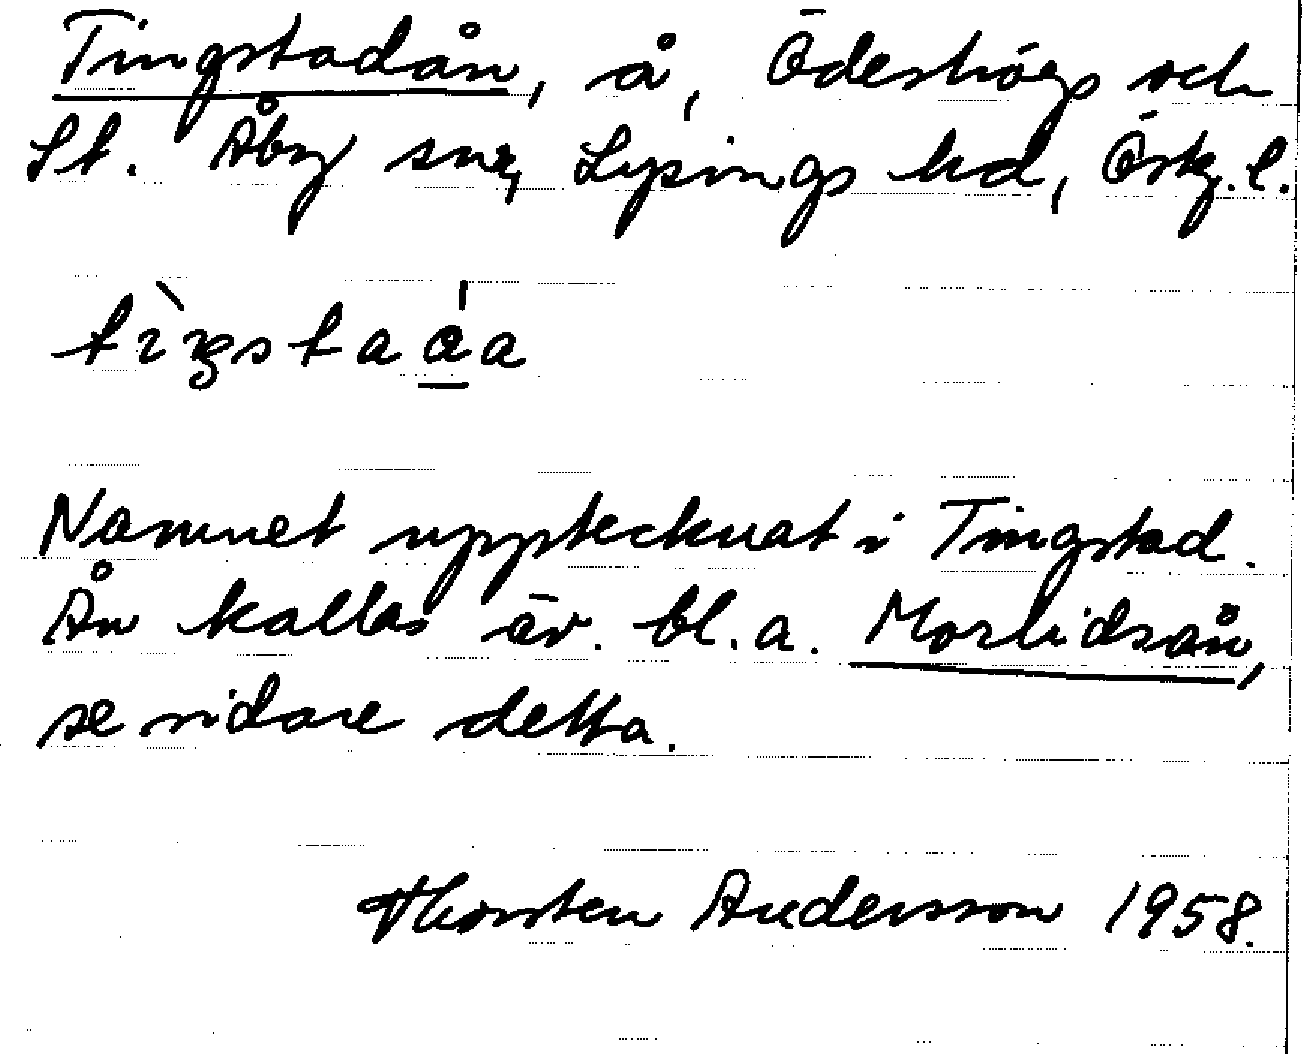 Tingstadån, å, Ödeshögs och
St. Åby snr, Lysings hd, Östg.l.
Namnet upptecknat i Tingstad.
Ån kallas äv. bl.a. Morlidsån,
se vidare detta.
Thorsten Andersson 1958.